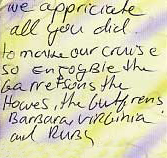 we appriciate
all you did.
to make our cruise
so Enjoyble the
Garretsons the
Howes, the Gutgrens
Barbara Virginia
and Ruby